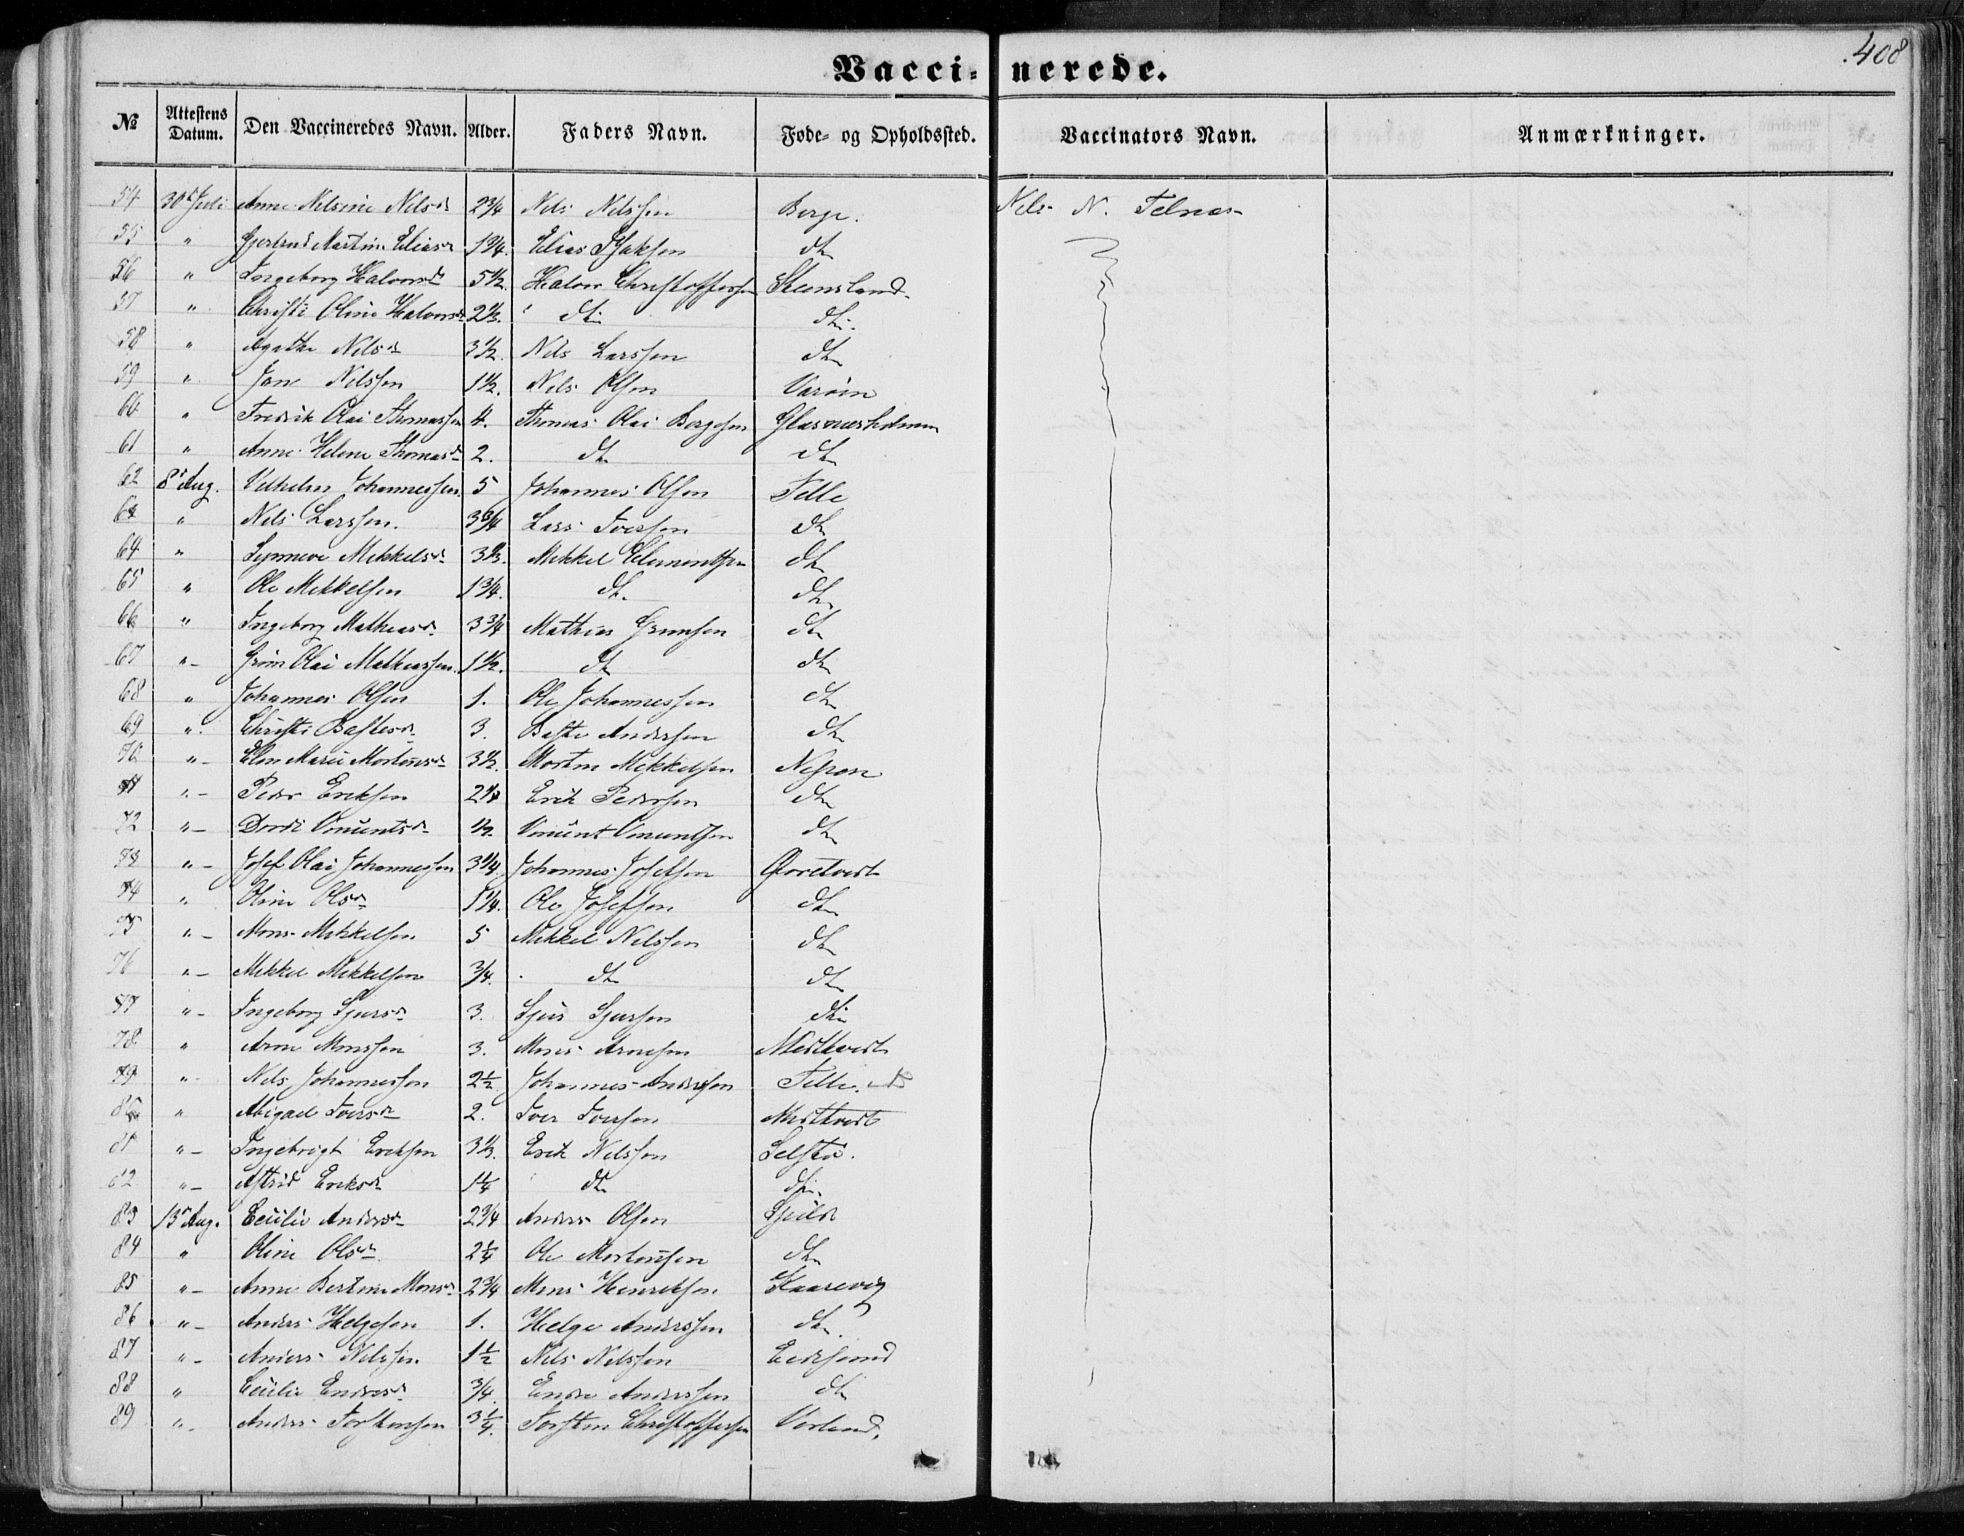 408
Vaccinerede.
№ Attestens Datum. Den Vaccineredes Navn. Alder. Faders Navn. Føde- og Opholdssted. Vaccinators Navn. Anmærkninger.
54 30te Juli Anne Nilsine Nilsdr 2 3/4 Nils Nilssen Berge. Nils N. Telnes
55 " Gjertrud Martine Eliasdr 1 3/4. Elias Isaksen do
56 " Ingeborg Halvorsdr 5 1/2. Halvor Christoffersen Steensland
57 " Christi Oline Halvorsdr 2 1/3. do do
58 " Agathe Nilsdr 3 1/2. Nils Larssen do
59 " Jan Nilssen 1 1/2. Nils Olsen Varøen
60 " Fredrik Olai Thomassen 4. Thomas Olai Børgesen Glesnæsholmen
61 " Anne Helene Thomasdr 2. do do
62 8de Aug. Vilhelm Johannessen 5 Johannes Olsen Telle
63 " Nils Larssen. 3 3/4 Lars Iversen do
64 " Synneve Mikkelsdr 3 1/3. Mikkel Clementsen do
65 " Ole Mikkelsen 1 3/4. do do
66 " Ingeborg Mathiasdr 3 3/4 Mathias Grimsen do
67 " Grim Olai Mathiassen 1 1/2. do do
68 " Johannes Olsen 1. Ole Johannessen do
69 " Christi Bastesdr 3. Baste Anderssen do
70 " Elen Marie Mortensdr 3 1/2. Morten Mikkelsen
71 " Peder Eriksen Erik Pedersen do
72 " Dordi Vincentsdr 1/2. Vincent Vincentsen do
73 " Josef Olai Johannessen 3 1/4 Johannes Josefsen
74 " Oline Olsdr 1 1/4. Ole Josefsen do
75 " Mons Mikkelsen 5 Mikkel Nilssen do
76 " Mikkel Mikkelsen 3/4. do do
77 " Ingeborg Sjursdr 3. Sjur Sjursen do
78 " Arne Monssen 3. Mons Arnesen Midtvedt
79 " Nils Johannessen 2 1/2 Johannes Anderssen Telle
80 " Abigael Iversdr 2. Iver Iversen Midtvedt
81 " Ingebrigt Eriksen 3 1/3. Erik Nilssen Selstø.
82 " Astrid Eriksdr 1 1/4 do do
83 13de Aug. Cecilie Andersdr 2 3/4 Anders Olsen Spilde
84 " Oline Olsdr 2 1/4 Ole Mortensen do
85 " Anne Bertine Monsdr 2 3/4 Mons Henriksen Kaarevig
86 " Anders Helgesen 1. Helge Anderssen do
87 " Anders Nilssen 1 1/2 Nils Nilssen Eidesund
88 " Cecilie Endresdr 3/4. Endre Anderssen do
89 " Anders Torstensen 3 1/4. Torsten Christoffersen Vorland.